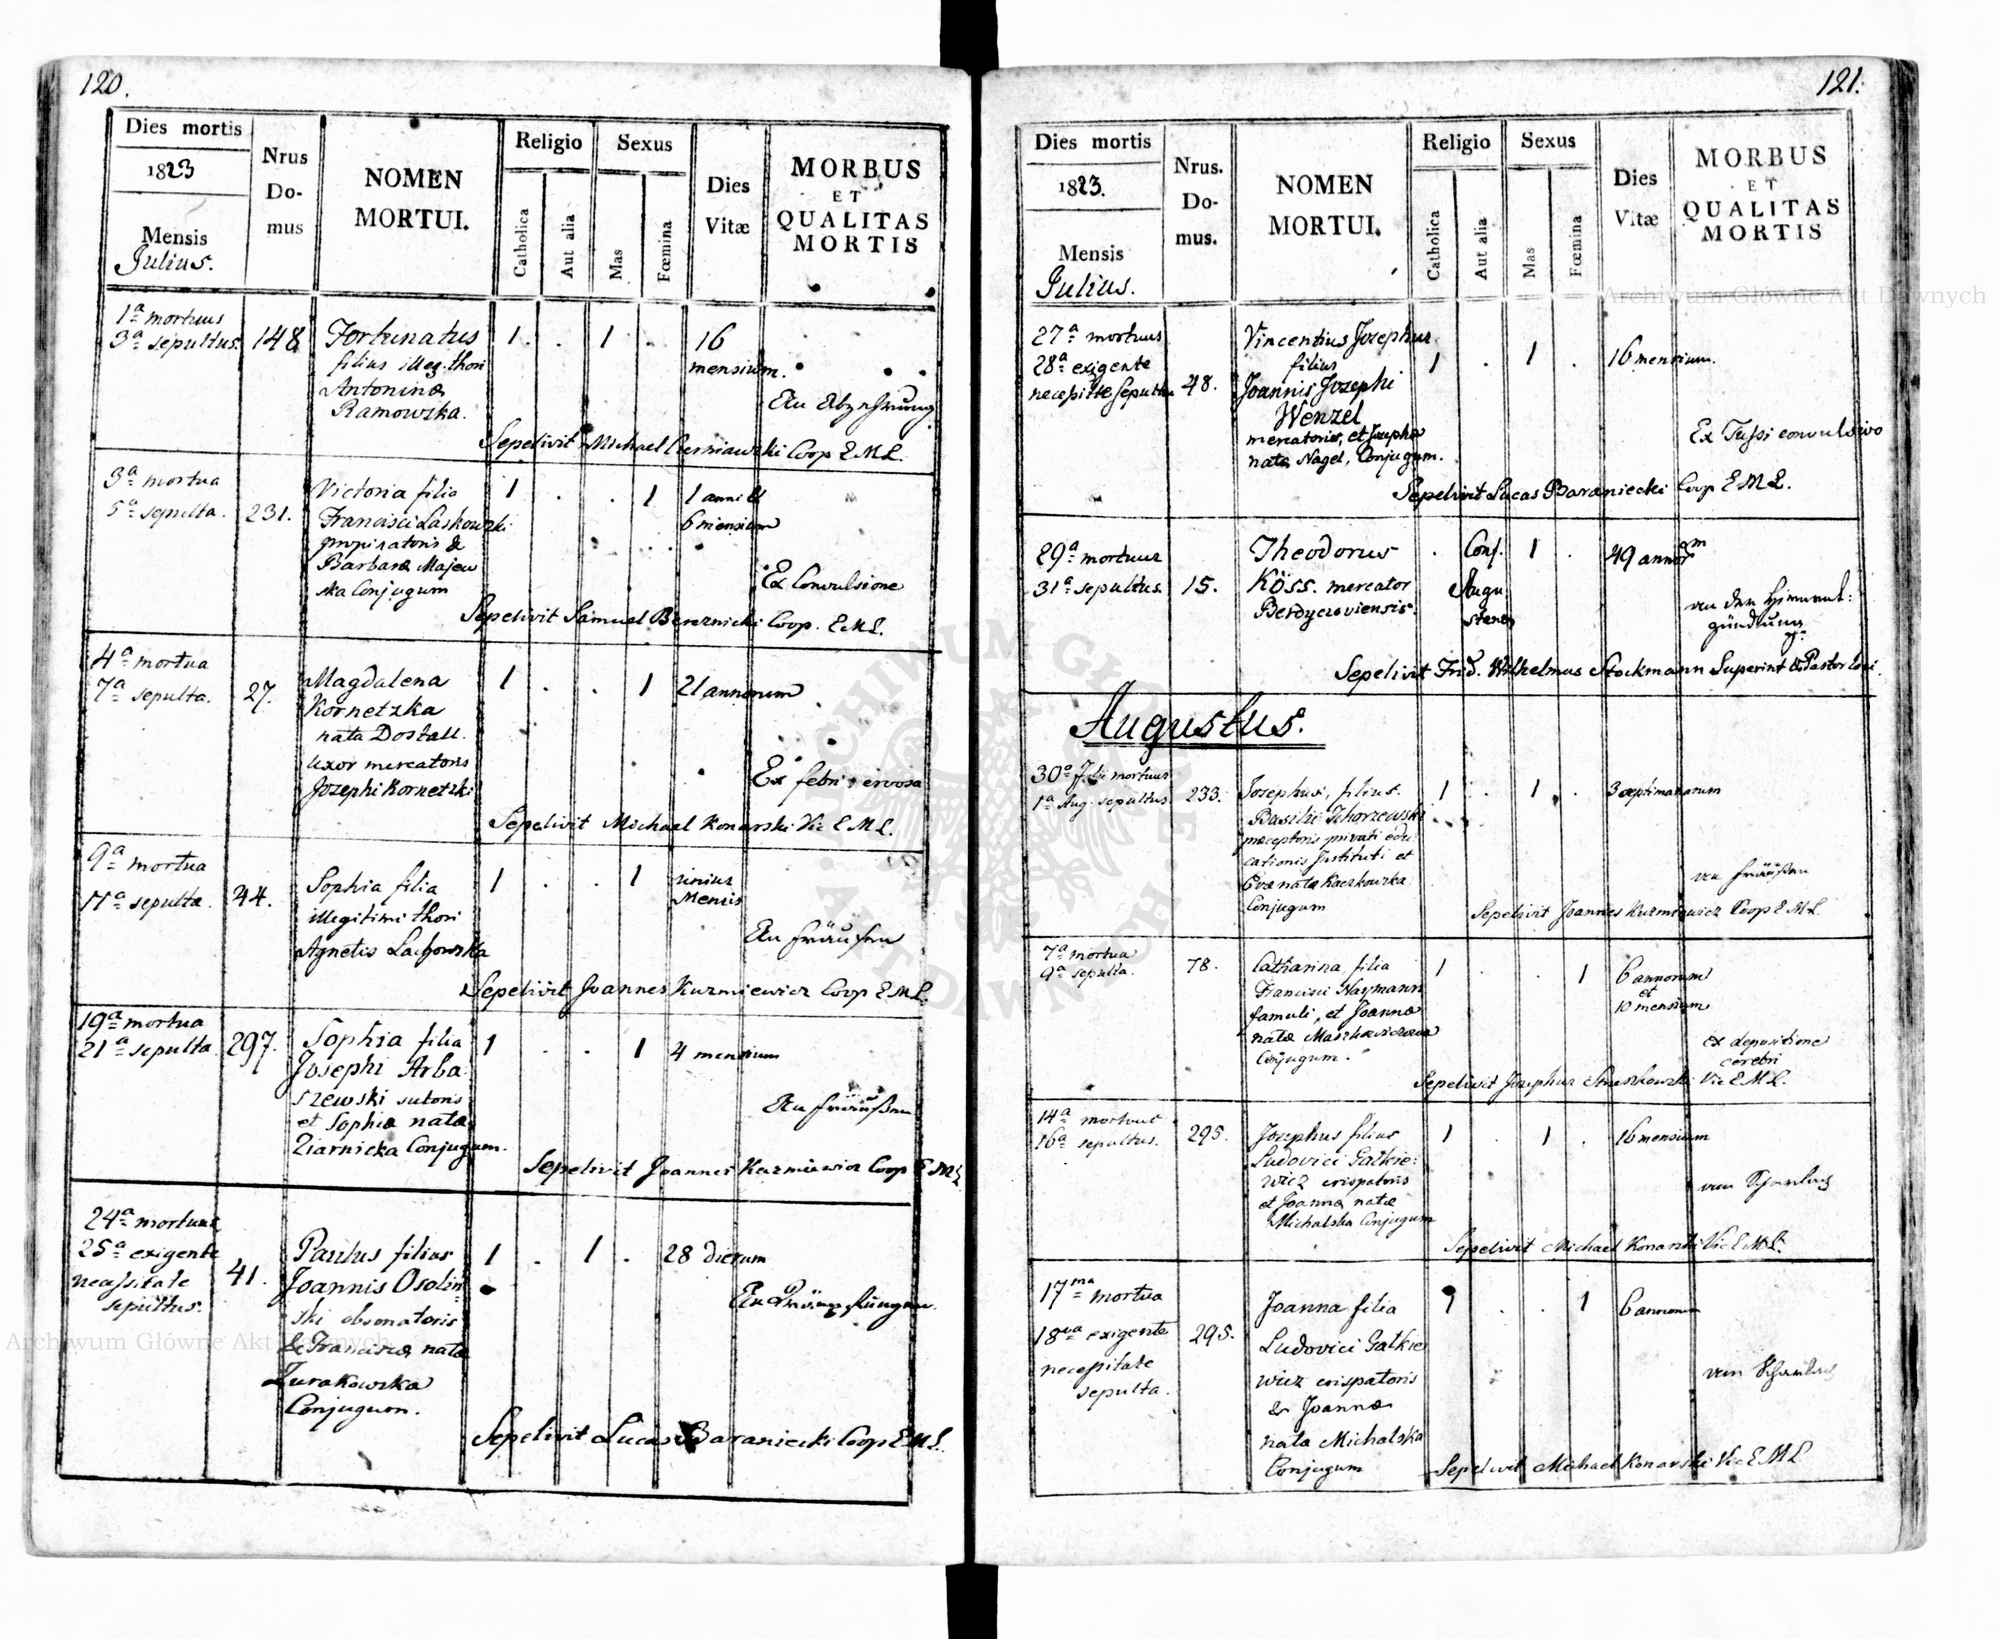 120.
Dies mortis
1823
Mensis
Julius.
Nrus
Do-
mus
NOMEN
MORTUI.
Religio
Catholica
Aut alia
Sexus
Mas
Fœmina
Dies
Vitæ
MORBUS
ET
QUALITAS
MORTIS
1a mortuus
3a sepultus.
148
Fortunatus
filius illeg. thori
Antoninæ
Ramowska.
1 . 1 .
16
mensium.
An Abzehrung
Sepelivit Michael Czerniawski Coop E.M.L.
3a mortua
5a sepulta.
231.
Victoria filia
Francisci Laskowski
propinatoris &
Barbaræ Majew
ska Conjugum
1 . . 1
1 anni &
6 mensium
Ex Convulsione
Sepelivit Samuel Bereznicki Coop. E.M.L.
4a mortua
7a sepulta.
27.
Magdalena
Kornetzka
nata Dostall.
uxor mercatoris
Josephi Kornetzki
1 . . 1
21 annorum
Ex febri nervosa
Sepelivit Michael Konarski Vic E.M.L.
9a mortua
11a sepulta.
44.
Sophia filia
illegitimi thori
Agnetis Lachowska
1 . . 1
unius
Mensis
An Fraisen
Sepelivit Joannes Kuzmiewicz Coop E.M.L.
19a mortua
21a sepulta
297.
Sophia filia
Josephi Arba
szewski sutoris
et Sophiæ natæ
Ziarnicka Conjugum.
1 . . 1
4 mensium
An Fraisen
Sepelivit Joannes Kuzmiewicz Coop E.M.L.
24a mortuus
25a exigente
necessitate
sepultus.
41.
Paulus filius
Joannis Osolin=
ski obsonatoris
& Franciscæ natæ
Zurakowska
Conjugum.
1 . 1 .
28 dierum
Sepelivit Lucas Baraniecki Coop E.M.L.
121.
Dies mortis
1823.
Mensis
Julius.
Nrus.
Do-
mus.
NOMEN
MORTUI.
Religio
Catholica
Aut alia
Sexus
Mas
Fœmina
Dies
Vitæ
MORBUS
ET
QUALITAS
MORTIS
27a mortuus
28a exigente
necessitate sepultus
48.
Vincentius Josephus
filius
Joannis Josephi
Wenzel
mercatoris, et Josephæ
natæ Nagel, Conjugum.
1 . 1 .
16 mensium.
Ex Tussi convulsivo
Sepelivit Lucas Baraniecki Coop E.M.L.
29a mortuus
31a sepultus.
15.
Theodorus
Köss. mercator
Berdyczoviensis.
. Conf.
Augu
stanæ
1 .
49 annorum
an der Hirnent:
zündung
Sepelivit Frid. Wilhelmus Stockmann Superint & Pastor Loci.
Augustus.
30a Julii mortuus
1a Aug. sepultus.
233.
Josephus, filius.
Basilii Tchorzewski
præceptoris privati edu
cationis Instituti et
Evæ natæ Kaczkowska
Conjugum
1 . 1 .
3 septimanarum
an Fraisen
Sepelivit Joannes Kuzmiewicz Coop E.M.L.
7a mortua
9a sepulta.
78.
Catharina filia
Francisci Naymann
famuli, et Joannæ
natæ
Conjugum.
1 . . 1
6 annorum
et
10 mensium
ex depositione
cerebri
Sepelivit Josephus Vic E.M.L.
14a mortuus
16a sepultus.
295.
Josephus filius
Ludovici Gatkie:
wicz crispatoris
et Joannæ natæ
Michalska Conjugum
1 . 1 .
16 mensium
am Scharlach
Sepelivit Michael Konarski Vic E.M.L.
17ma mortua
18va exigente
necessitate
sepulta.
295.
Joanna filia
Ludovici Gatkie
wicz crispatoris
& Joannæ
nata Michalska
Conjugum
1 . . 1
6 annorum
am Scharlach
Sepelivit Michael Konarski Vic E.M.L
Archiwum Główne Akt Dawnych
Archiwum Główne Akt Dawnych
ARCHIWUM GŁÓWNE AKT DAWNYCH